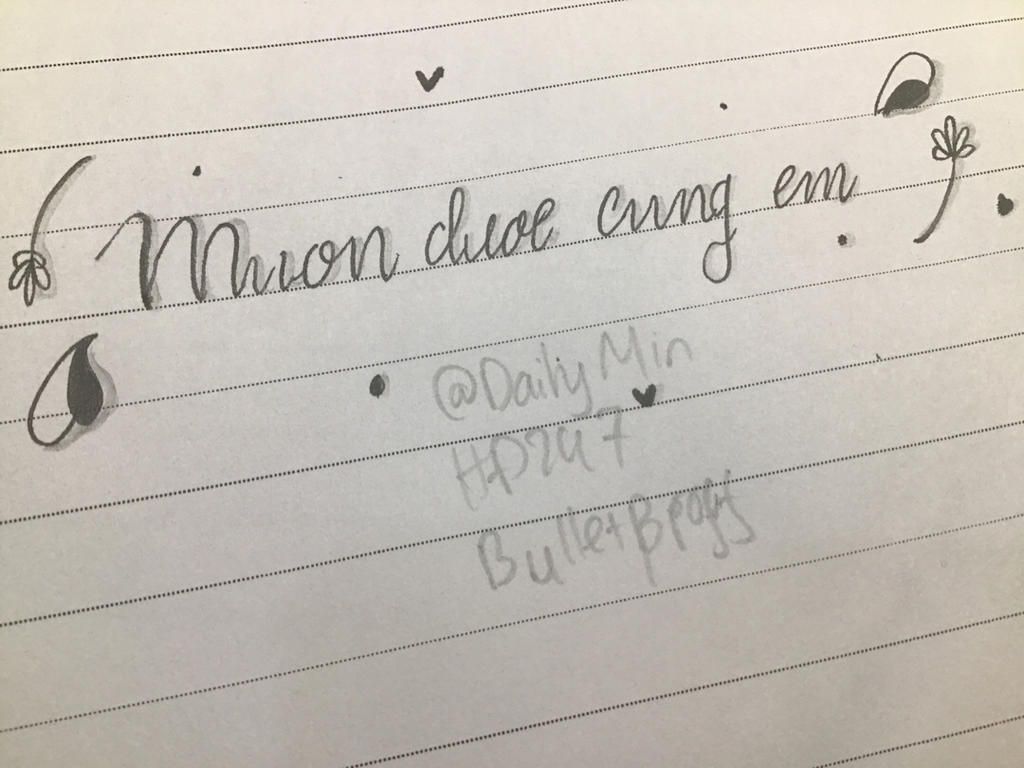 Muon duoc cung em
@DailyMin
HD247